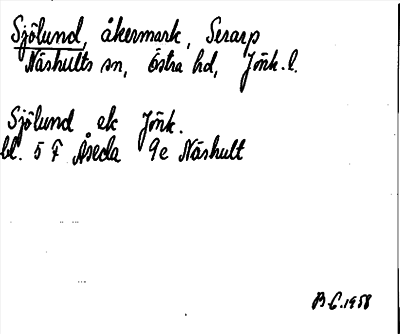 Sjölund, åkermark, Serarp
Näshults sn, Östra hd, Jönk. l.
Sjölund ek Jönk.
bl. 5 F Åseda 9e Näshult
B.C. 1958